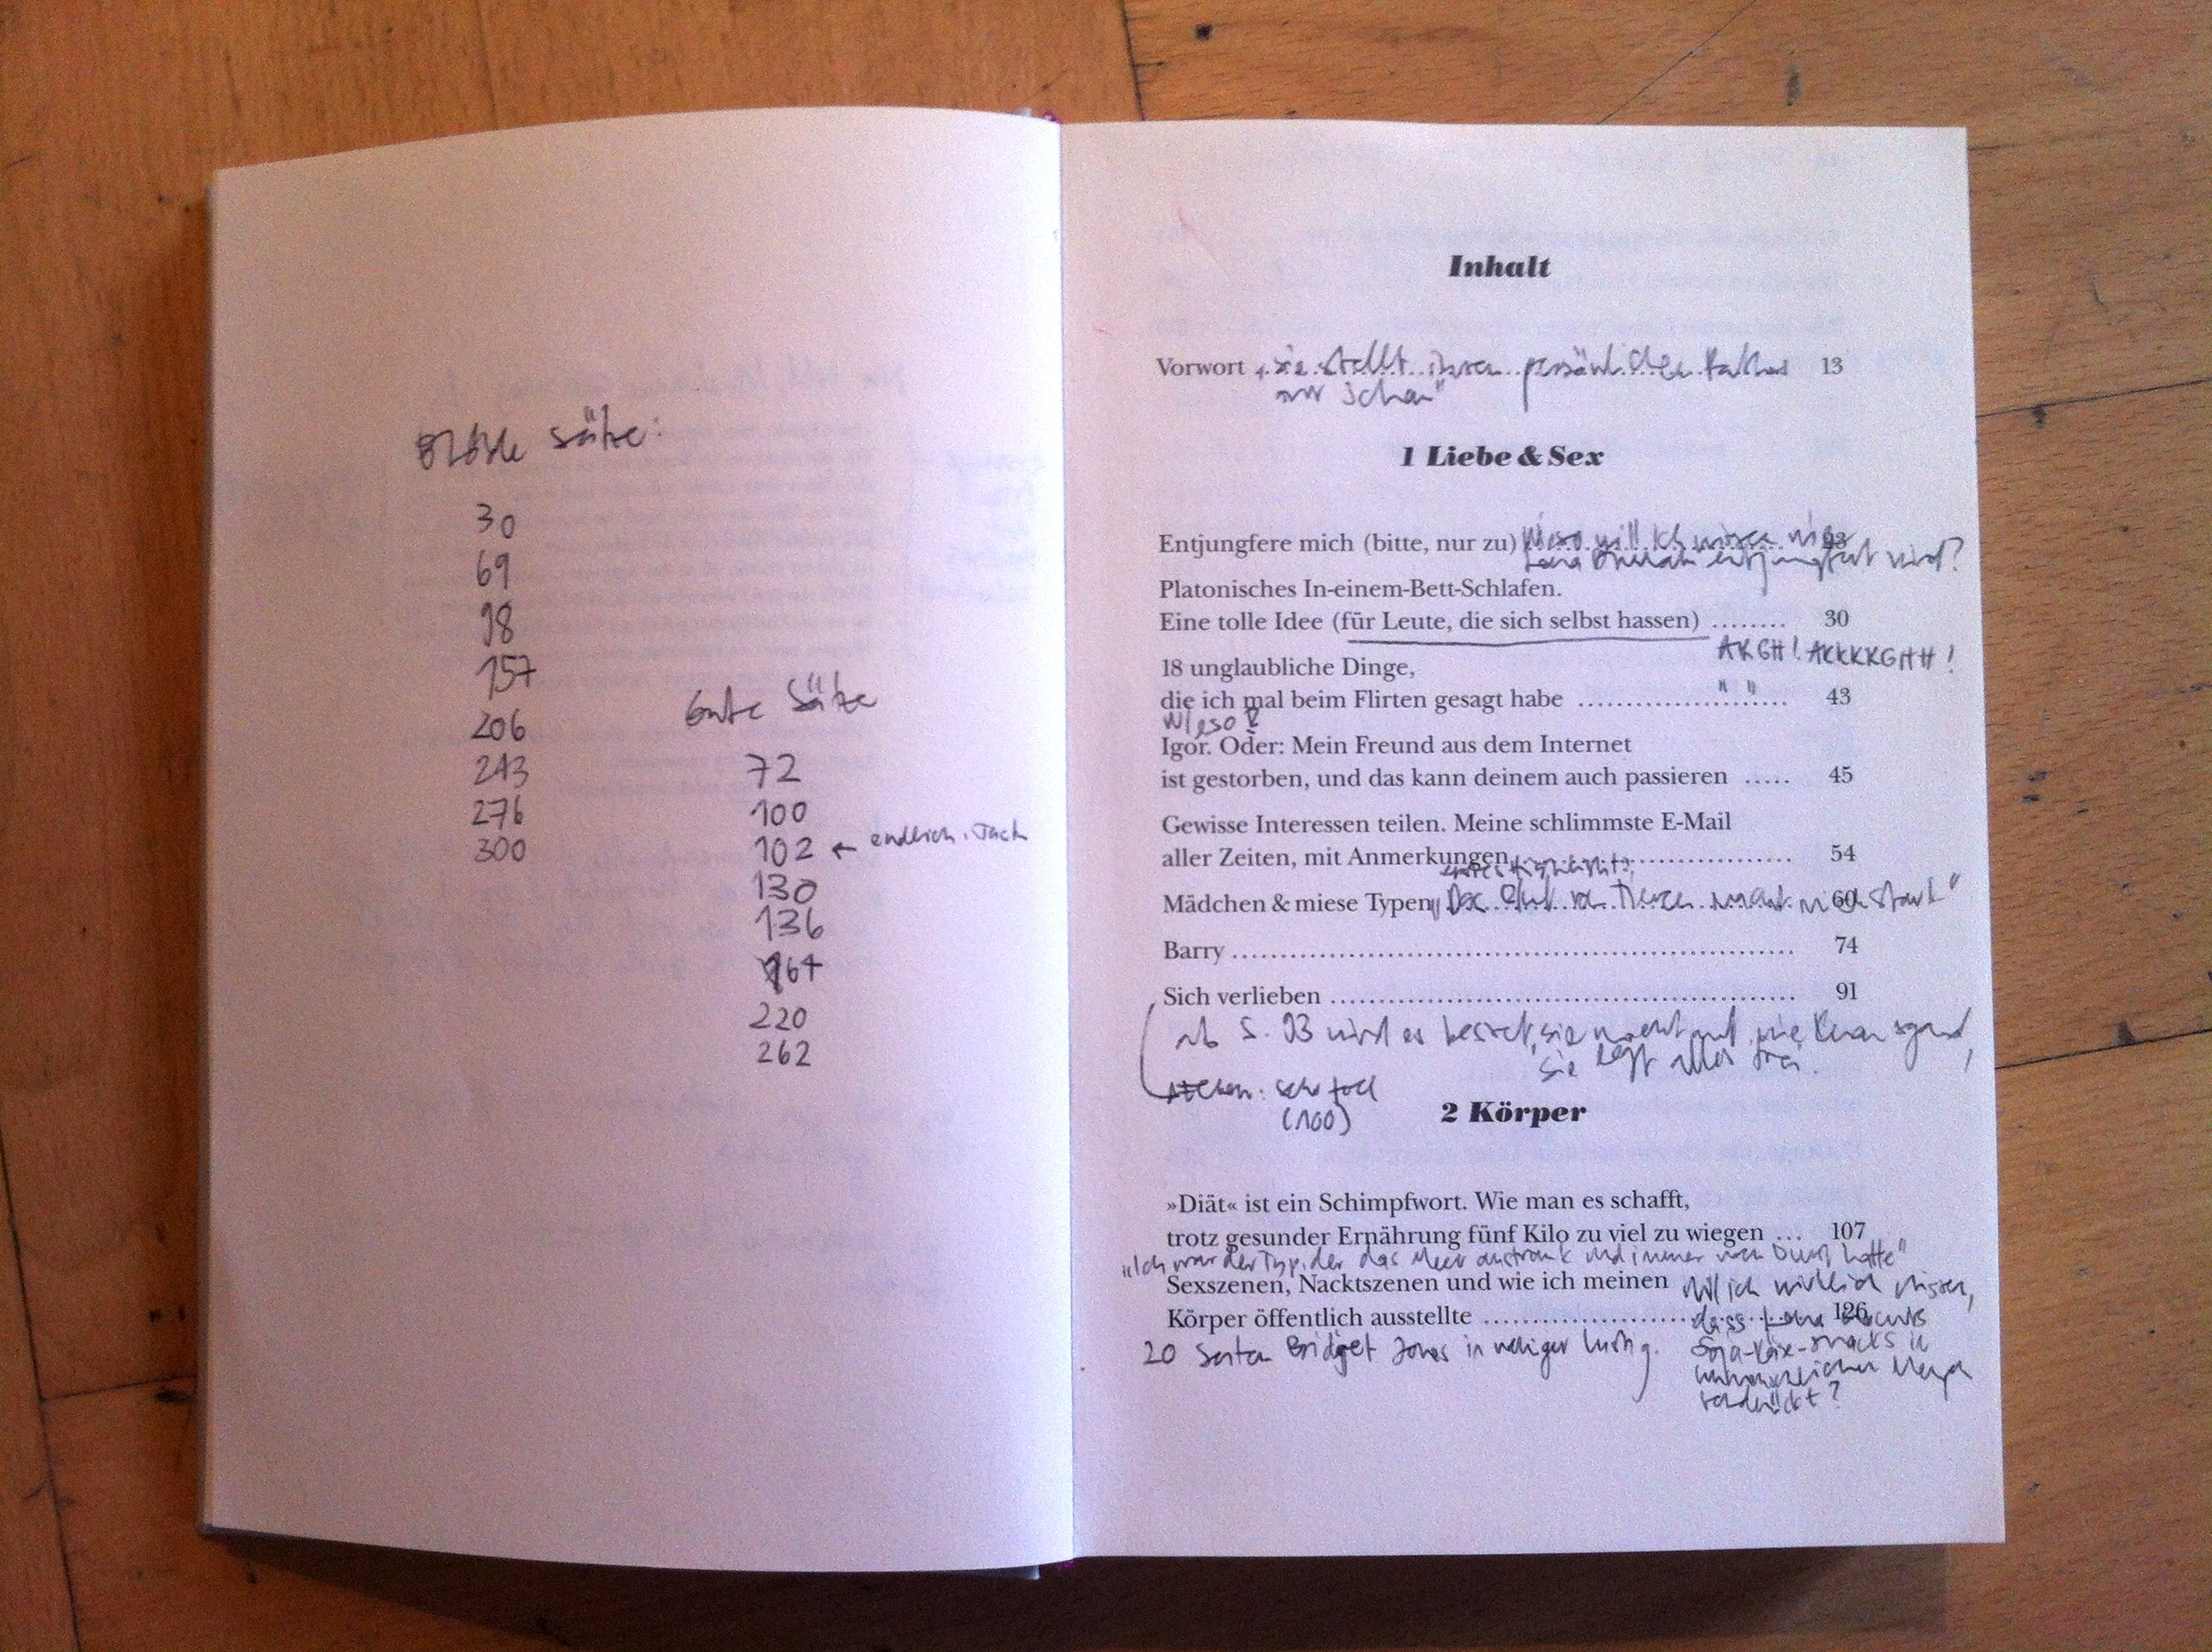 Blöde Sätze:
30
69
98
157
206
243
276
300
Gute Sätze
72
100
102 ← endlich
130
136
164
220
262
Inhalt
Vorwort „sie stellt ihren persönlichen 13
zur Schau“
1 Liebe & Sex
Entjungfere mich (bitte, nur zu) Wieso will ich wissen wie 23
Lena Dunham entjungfert wird?
Platonisches In-einem-Bett-Schlafen.
Eine tolle Idee (für Leute, die sich selbst hassen) ........ 30
ARGH! ARRRRGHH!
18 unglaubliche Dinge,
die ich mal beim Flirten gesagt habe ...................... " " 43
Wieso?
Igor. Oder: Mein Freund aus dem Internet
ist gestorben, und das kann deinem auch passieren ..... 45
Gewisse Interessen teilen. Meine schlimmste E-Mail
aller Zeiten, mit Anmerkungen ............................. 54
Mädchen & miese Typen 60
Barry .......................................................... 74
Sich verlieben ................................................ 91
ab S. 93 wird es besser, sie macht auf wie
sie legt alles frei.
sehr toll
(100)
2 Körper
»Diät« ist ein Schimpfwort. Wie man es schafft,
trotz gesunder Ernährung fünf Kilo zu viel zu wiegen ... 107
„Ich war der Typ, der das Meer austrank und immer noch Durst hatte“
Sexszenen, Nacktszenen und wie ich meinen
Körper öffentlich ausstellte ................................ 126
Will ich wirklich wissen,
dass Lena
Soja-Käse-Snacks in
unmenschlicher Menge
verdrückt?
20 Seiten Bridget Jones in weniger lustig.